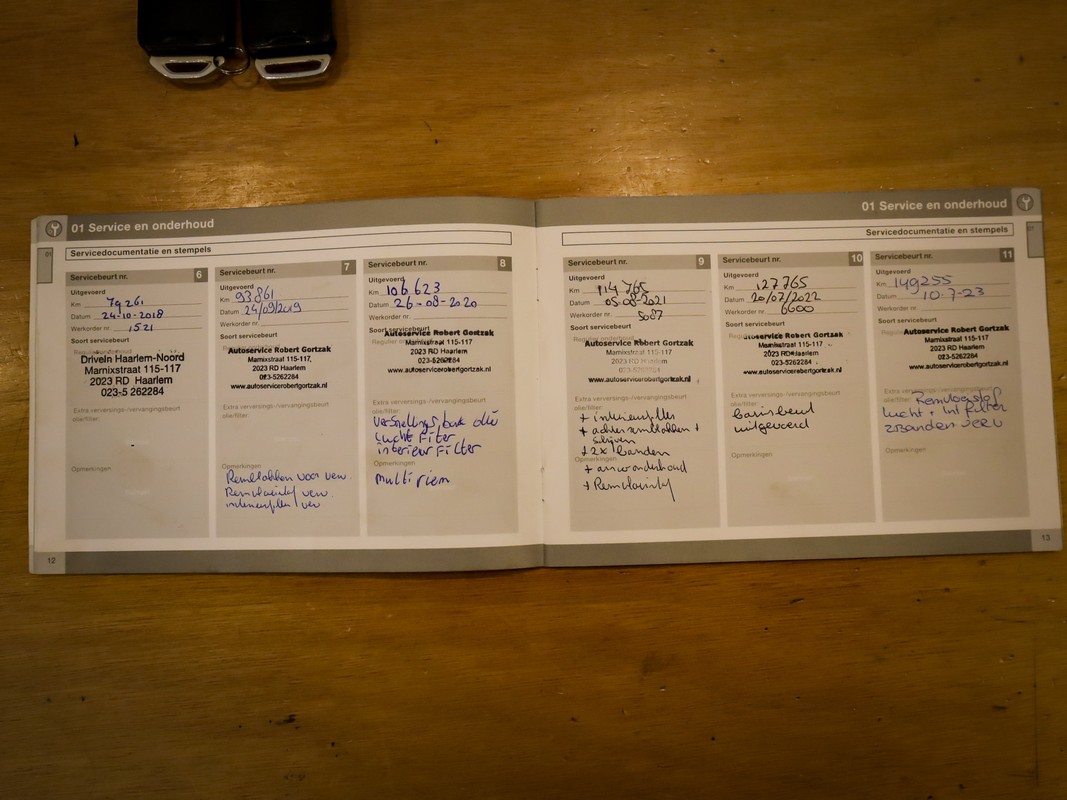 01 Service en onderhoud
Servicedocumentatie en stempels
01
Servicebeurt nr. 6
Uitgevoerd
Km 79 261
Datum 24-10-2018
Werkorder nr. 1521
Soort servicebeurt
DriveIn Haarlem-Noord
Marnixstraat 115-117
2023 RD Haarlem
023-5 262284
Extra verversings-/vervangingsbeurt
olie/filter:
Opmerkingen
Servicebeurt nr. 7
Uitgevoerd
Km 93861
Datum 24/09/2019
Werkorder nr.
Soort servicebeurt
Autoservice Robert Gortzak
Marnixstraat 115-117,
2023 RD Haarlem
023-5262284
www.autoservicerobertgortzak.nl
Extra verversings-/vervangingsbeurt
olie/filter:
Opmerkingen
Remblokken voor verv.
Remvloeistof verv.
interieurfilter verv
Servicebeurt nr. 8
Uitgevoerd
Km 106.623
Datum 26-08-2020
Werkorder nr.
Soort servicebeurt
Autoservice Robert Gortzak
Marnixstraat 115-117
2023 RD Haarlem
023-5262284
www.autoservicerobertgortzak.nl
Extra verversings-/vervangingsbeurt
olie/filter:
Versnellings bak olie
Lucht Filter
interieur Filter
Opmerkingen
multi riem
12
01 Service en onderhoud
Servicedocumentatie en stempels
Servicebeurt nr. 9
Uitgevoerd
Km 114 765
Datum 05-08-2021
Werkorder nr. 5087
Soort servicebeurt
Autoservice Robert Gortzak
Marnixstraat 115-117
2023 RD Haarlem
www.autoservicerobertgortzak.nl
Extra verversings-/vervangingsbeurt
olie/filter:
+ interieurfilter
+ achterremblokken +
schijven
+ 2x banden
Opmerkingen
+ airco onderhoud
+ Remvloeistof
Servicebeurt nr. 10
Uitgevoerd
Km 127765
Datum 20/07/2022
Werkorder nr. 6600
Soort servicebeurt
Autoservice Robert Gortzak
Marnixstraat 115-117
2023 RD Haarlem
023-5262284
www.autoservicerobertgortzak.nl
Extra verversings-/vervangingsbeurt
olie/filter:
basisbeurt
uitgevoerd
Opmerkingen
Servicebeurt nr. 11
Uitgevoerd
Km 149255
Datum 10-7-23
Werkorder nr.
Soort servicebeurt
Autoservice Robert Gortzak
Marnixstraat 115-117
2023 RD Haarlem
023-5262284
www.autoservicerobertgortzak.nl
Extra verversings-/vervangingsbeurt
olie/filter:
Remvloeistof
lucht + int filter
2 Banden verv
Opmerkingen
13